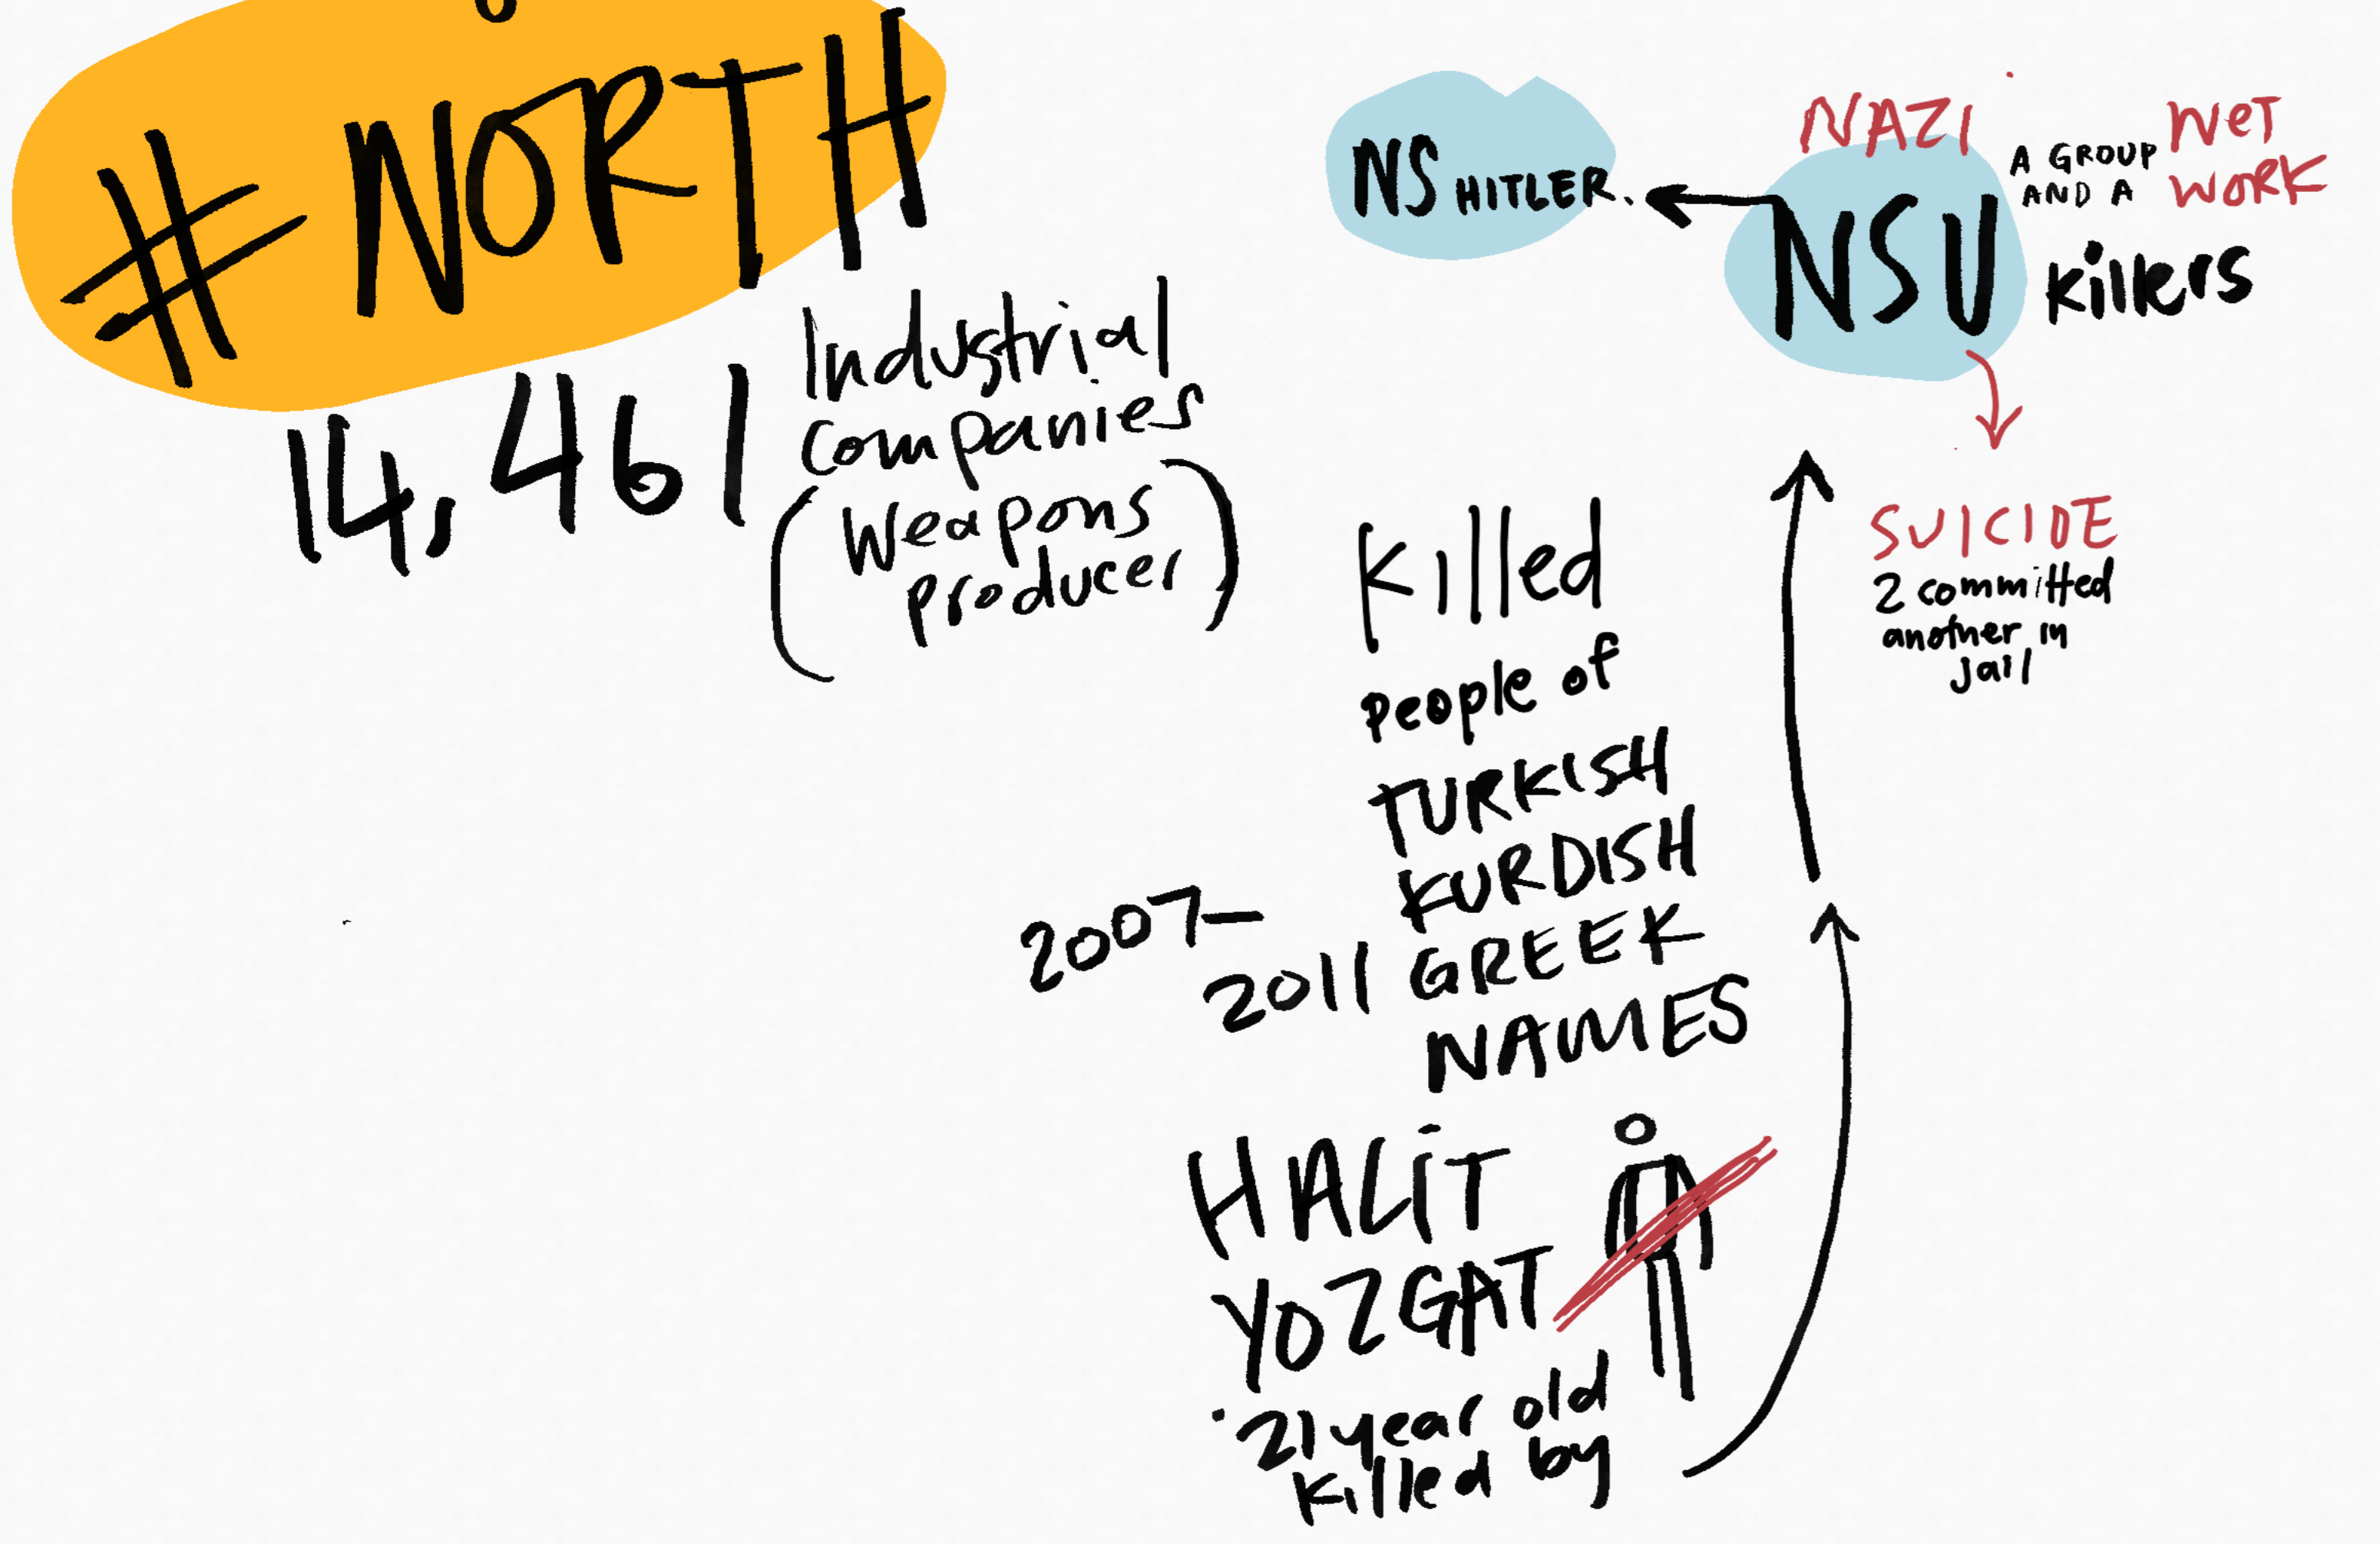 # NORTH
14,461
Industrial
companies
(Weapons
producer)
NS HITLER.
NAZI
NSU
A GROUP
AND A
NET
WORK
killers
SUICIDE
2 committed
another in
jail
Killed
people of
TURKISH
KURDISH
GREEK
NAMES
2007-
2011
HALİT
YOZGAT
·21 year old
killed by